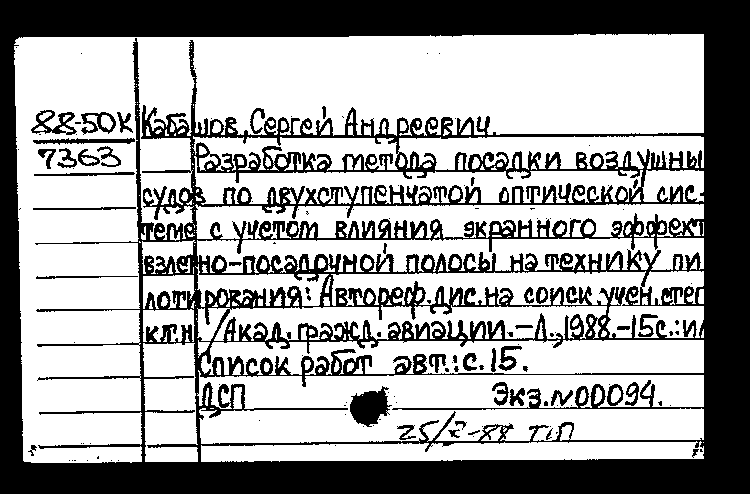 88-50К Кабашов, Сергей Андреевич.
7363 Разработка метода посадки воздушны
судов по двухступенчатой оптической сис-
теме с учетом влияния экранного эффект
взлетно-посадочной полосы на технику пи
лотирования: Автореф. дис. на соиск. учен. степ
к.т.н. / Акад. гражд. авиации. – Л., 1988. – 15с.: ил
Список работ авт.: с. 15.
ДСП Экз. N00094.